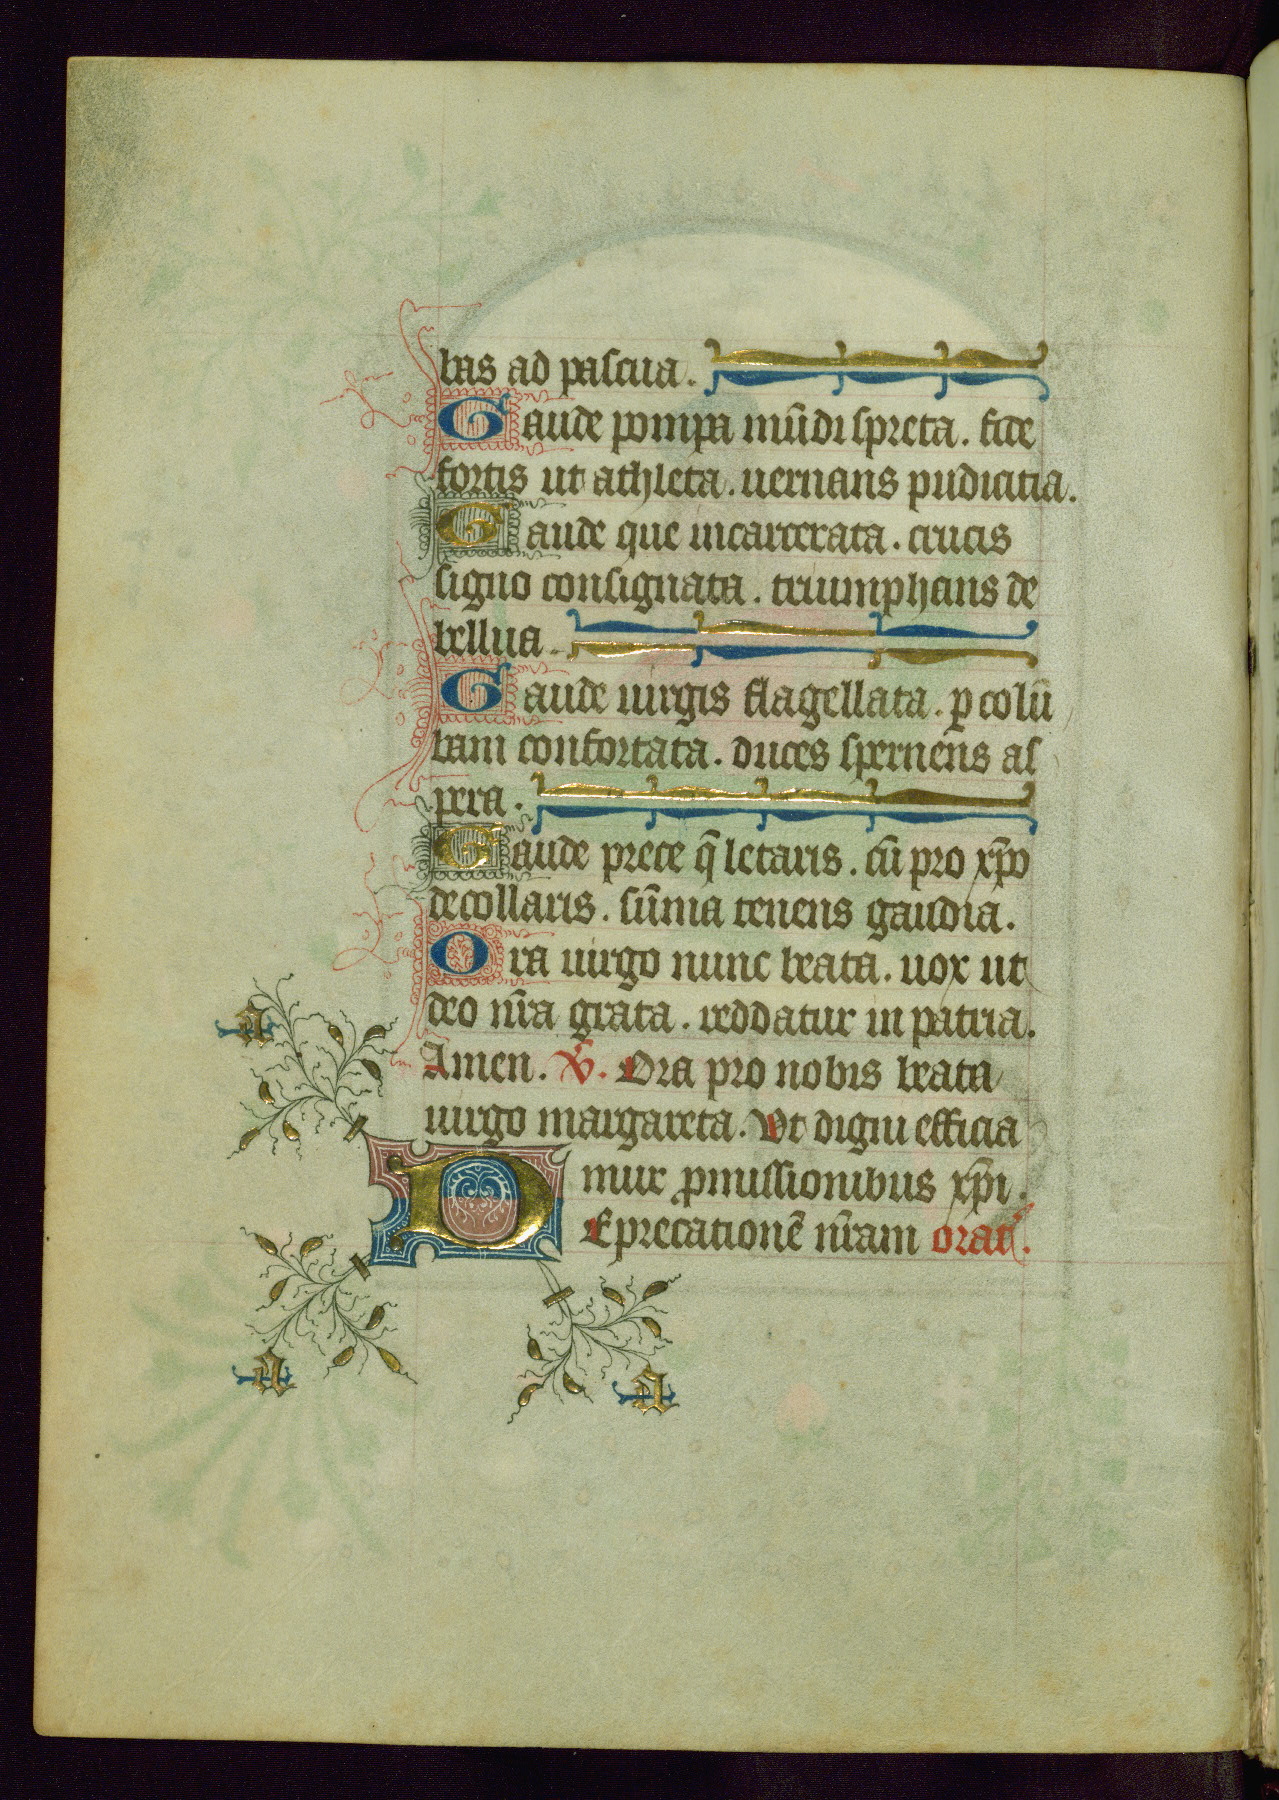 bas ad pascua.
Gaude pompa mūdi spreta. fide
fortis ut athleta. uernans pudicitia.
Gaude que incarcerata. crucis
signo consignata. triumphans de
bellua.
Gaude uirgis flagellata. ꝑ colū
bam confortata. duces spernens as
pera.
Gaude prece q̄ letaris. cū pro xp̄o
decollaris. sūma tenens gaudia.
Ora uirgo nunc beata. uox ut
deo nr̄a grata. reddatur in patria.
Amen. V. Ora pro nobis beata
uirgo margareta. Ut digni efficia
mur ꝓmissionibus xp̄i.
DEprecationē nr̄am orat̄.